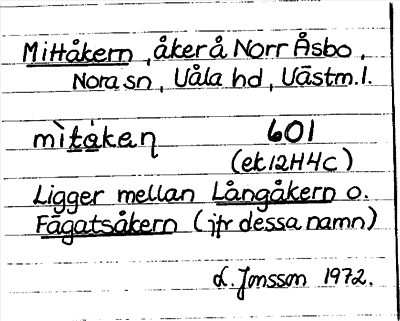 Mittåkern, åker å Norr Åsbo,
Nora sn, Våla hd, Västm.l.
mìtåkaɳ 601
(ek 12H4c)
Ligger mellan Långåkern o.
Fägatsåkern (jfr dessa namn)
L. Jonsson 1972.